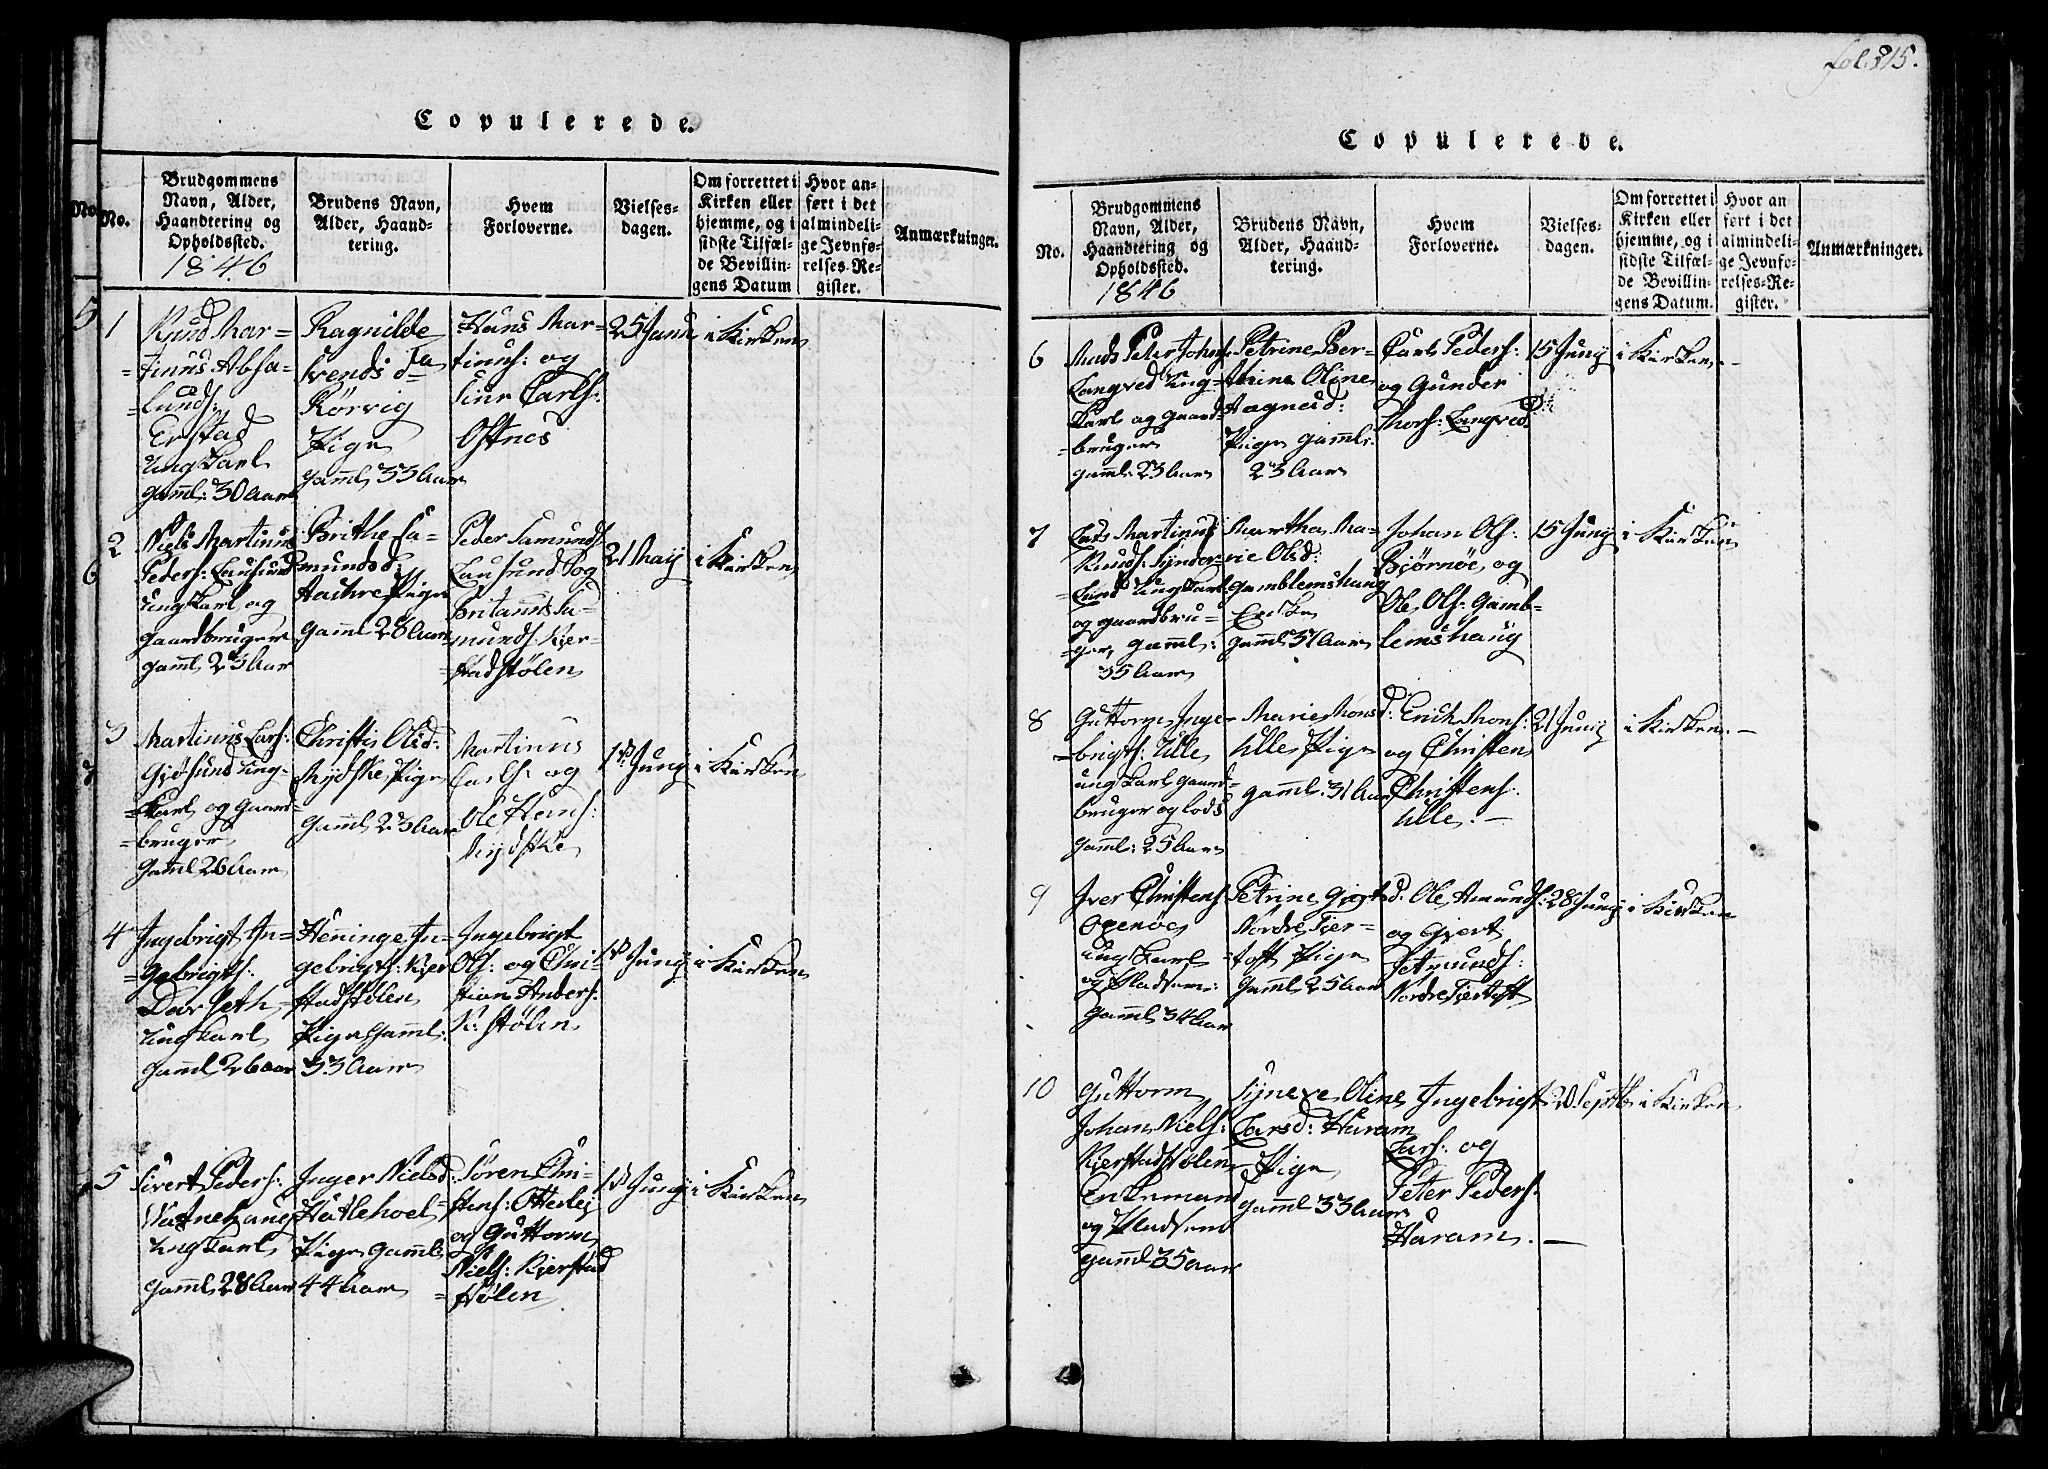 fol. 315.
Copulerede.
No.
Brudgommens
Navn, Alder,
Haandtering og
Opholdssted.
1846
Brudens Navn,
Alder, Haand-
tering.
Hvem
Forloverne.
Vielses-
dagen.
Om forrettet i
Kirken eller
hjemme, og i
sidste Tilfæl-
de Bevillin-
gens Datum
Hvor an-
ført i det
almindeli-
ge Jevnfø-
relses-Re-
gister.
Anmærkninger.
1
Knud Mar-
tinus Absa-
luds:
Erstad
ungkarl
gaml: 30 Aar
Ragnilde
Svends da
Rörvig
Pige
gaml 33 Aar
Hans Mar-
tinus: og
Carls:
Ostnes
25 Janu
i Kirken
2
Niels Martinus
Peders: Lausund
ungkarl og
gaardbruger
gaml 23 Aar
Brithe Sa-
mundsd:
Pige
gaml 28 Aar
Peder Samunds
Lausund og
Sa-
munds: Kjer-
stadstölen
21 May
i Kirken
3
Martinus Lars:
Gjøsund ung-
karl og gaard-
bruger
gaml 26 Aar
Christie Olsd:
Mydske Pige
gaml 23 Aar
Martinus
Carls: og
Ole Hans:
Mydske
1ste Juny
i Kirken
4
Ingebrigt In-
gebrigts:
Davseth
ungkarl
gaml 26 aar
Henninge In-
gebrigts: Kjer
stadstölen
Pige gaml:
33 Aar
Ingebrigt
Ols: og Chri-
stian Anders:
K: stölen
1ste Juny
i Kirken
5
Sivert Peders:
Vatnehaug
ungkarl
gaml 28 Aar
Inger Nielsd
Hatlehoel
Pige gaml
44 Aar
Sören Chri-
stens: Otterlej
og Guttorm
Niels: Kjerstad
stölen
1ste Juny
i Kirken
Copulerede.
No.
Brudgommens
Navn, Alder,
Haandtering og
Opholdssted.
1846
Brudens Navn,
Alder, Haand-
tering.
Hvem
Forloverne.
Vielses-
dagen.
Om forrettet i
Kirken eller
hjemme, og i
sidste Tilfæl-
de Bevillin-
gens Datum.
Hvor an
ført i det
almindeli-
ge Jevnfø-
relses-Re-
gister.
Anmærkninger.
6
Mads Peter Johns:
Longved Ung-
karl og gaard-
bruger
gaml: 23 Aar
Petrine Ber-
thine Oline
Aagnesd:
Pige gaml:
23 Aar
Carl Peders:
og Gunder
Thors: Longved
15 Juny
i Kirken.
7
Lars Martinus
Knuds: Synder-
Ungkarl
og gaardbru-
ger, gaml:
35 Aar
Martha Ma-
rie Olsd:
Gamblemshaug
Enke
gaml 37 Aar
Johan Ols:
Bjørnöe og
Ole Ols: Gamb-
lemshaug
15 Juny
i Kirken
8
Guttorm Inge-
brigts: Ulle
ungkarl gaard-
bruger og lods
gaml: 25 Aar
Marie Monsd:
Ulle Pige
gaml: 31 Aar
Erich Mons:
og Christen
Christens:
Ulle.
21 Juny
i Kirken.
9
Iver Christens
Oxenöe
ungkarl
og Pladsm:
gaml 34 Aar
Petrine Gjertsd:
Nordre Fjer-
toft Pige
gaml 25 Aar
Ole Amunds:
og Gjert
Petmunds:
Nordre Fjertoft
28 Juny
i Kirken
10
Guttorm
Johan Niels:
Kjerstadstölen
Enkemand
og Pladsm
gaml 35 Aar
Synneve Oline
Larsd: Haram
Pige
gaml 33 Aar
Ingebrigt
Lars: og
Peter Peders:
Haram.
20 Septb
i Kirken